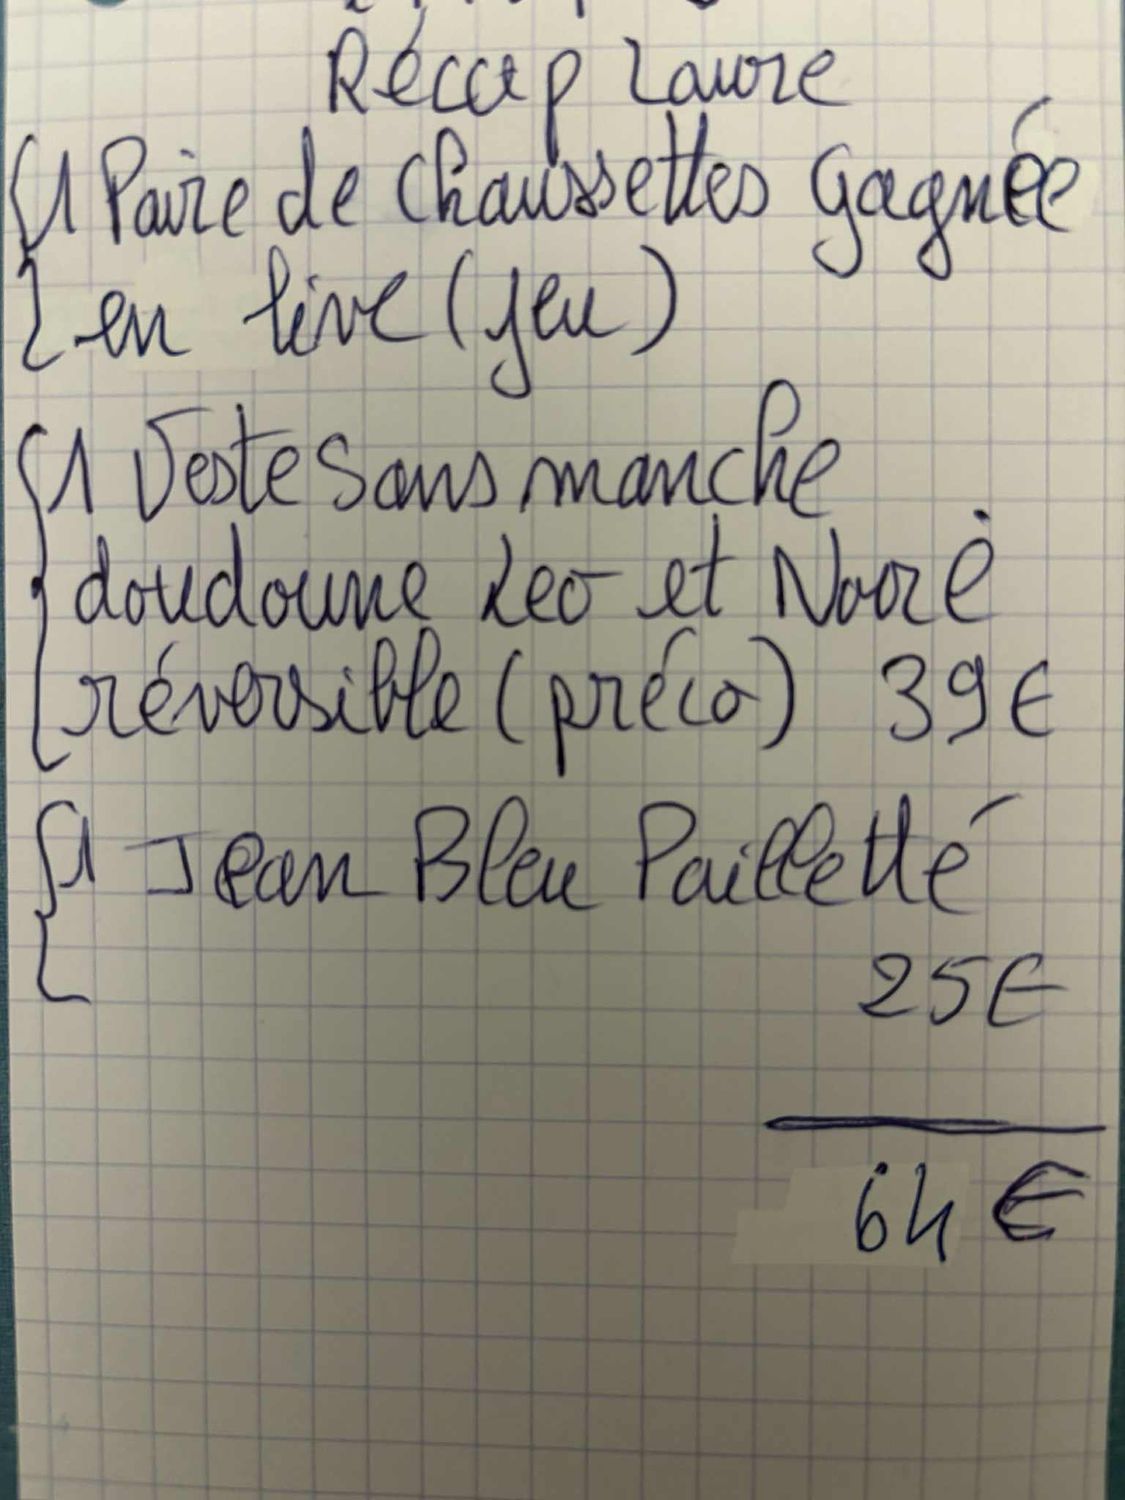 Récap Laure
1 Paire de chaussettes gagnée
en live (jeu)
1 Veste sans manche
doudoune Leo et Noire
réversible (préco) 39€
1 Jean Bleu Pailletté
25€
64€